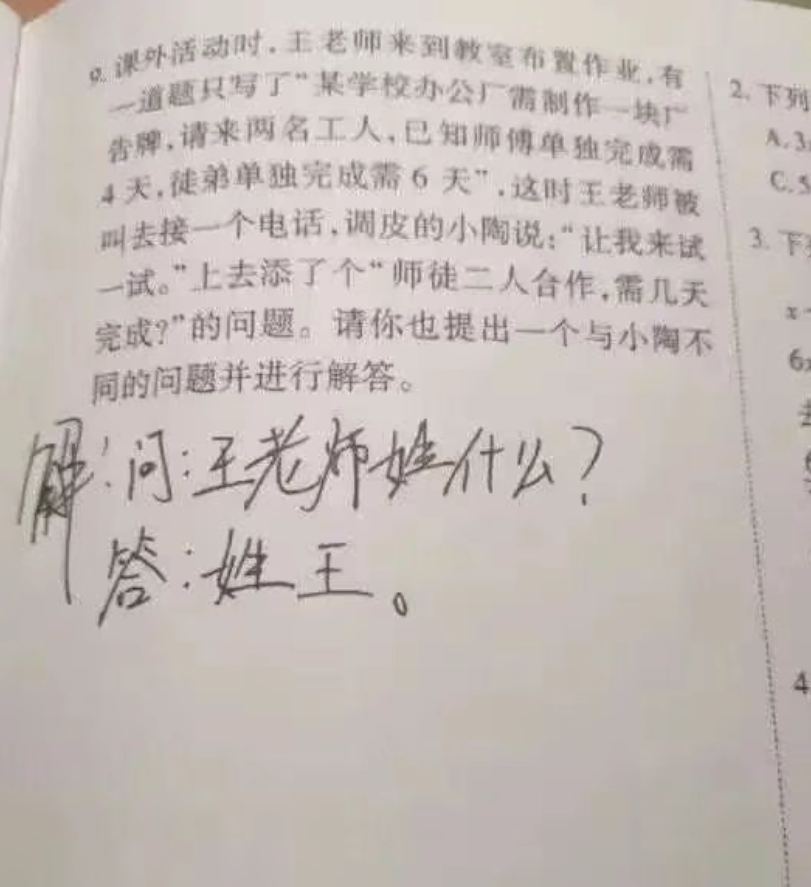 9. 课外活动时,王老师来到教室布置作业,有
一道题只写了“某学校办公厂需制作一块广
告牌,请来两名工人,已知师傅单独完成需
4天,徒弟单独完成需6天”,这时王老师被
叫去接一个电话,调皮的小陶说:“让我来试
一试。”上去添了个“师徒二人合作,需几天
完成?”的问题。请你也提出一个与小陶不
同的问题并进行解答。
解:问:王老师姓什么?
答:姓王。
2. 下列
A. 3
C. 5
3. 下
x
6x
4